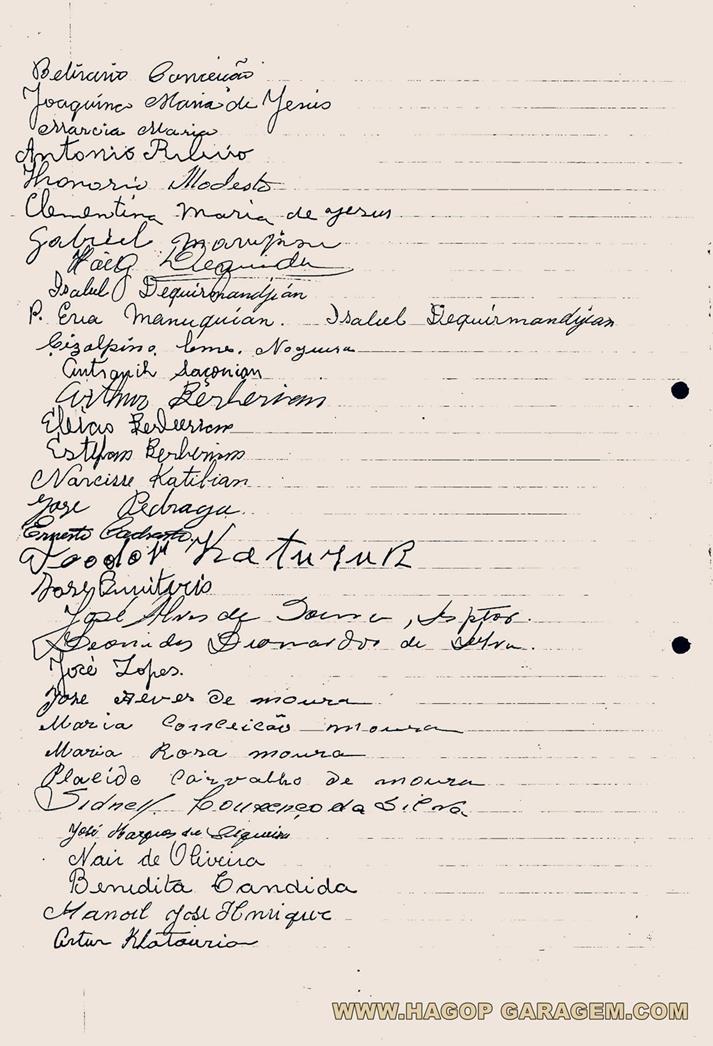 Belizario Conceição
Joaquina Maria de Jesus
Marcia Maria
Antonio Ribeiro
Honorio Modesto
Clementina Maria de Yesus
Gabriel
Haig
Isabel Dequirmandjián
P. Eva Manuquian. Isabel Dequirmandjian
Cizalpino Nogueira
Antranik Saçonian
Arthur Berberian
Elbis Berberian
Estefam Berberian
Narcisse Katibian
Jose Pedraga
Ernesto
Teodor
Jose
José Alves de
Leonidas de Silva.
José Lopes.
Jose Alves de moura
Maria Conceicão moura
Maria Rosa moura
Placido Carvalho de moura
Sidney Lourenço da Silva
José Marques de Siqueira
Nair de Oliveira
Benedita Candida
Manoel José Henrique
Artur
WWW.HAGOP GARAGEM.COM